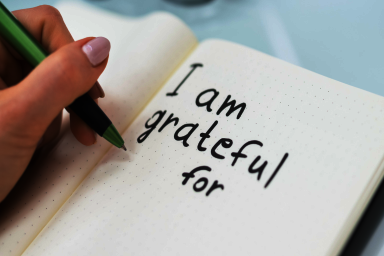 I am
grateful
for